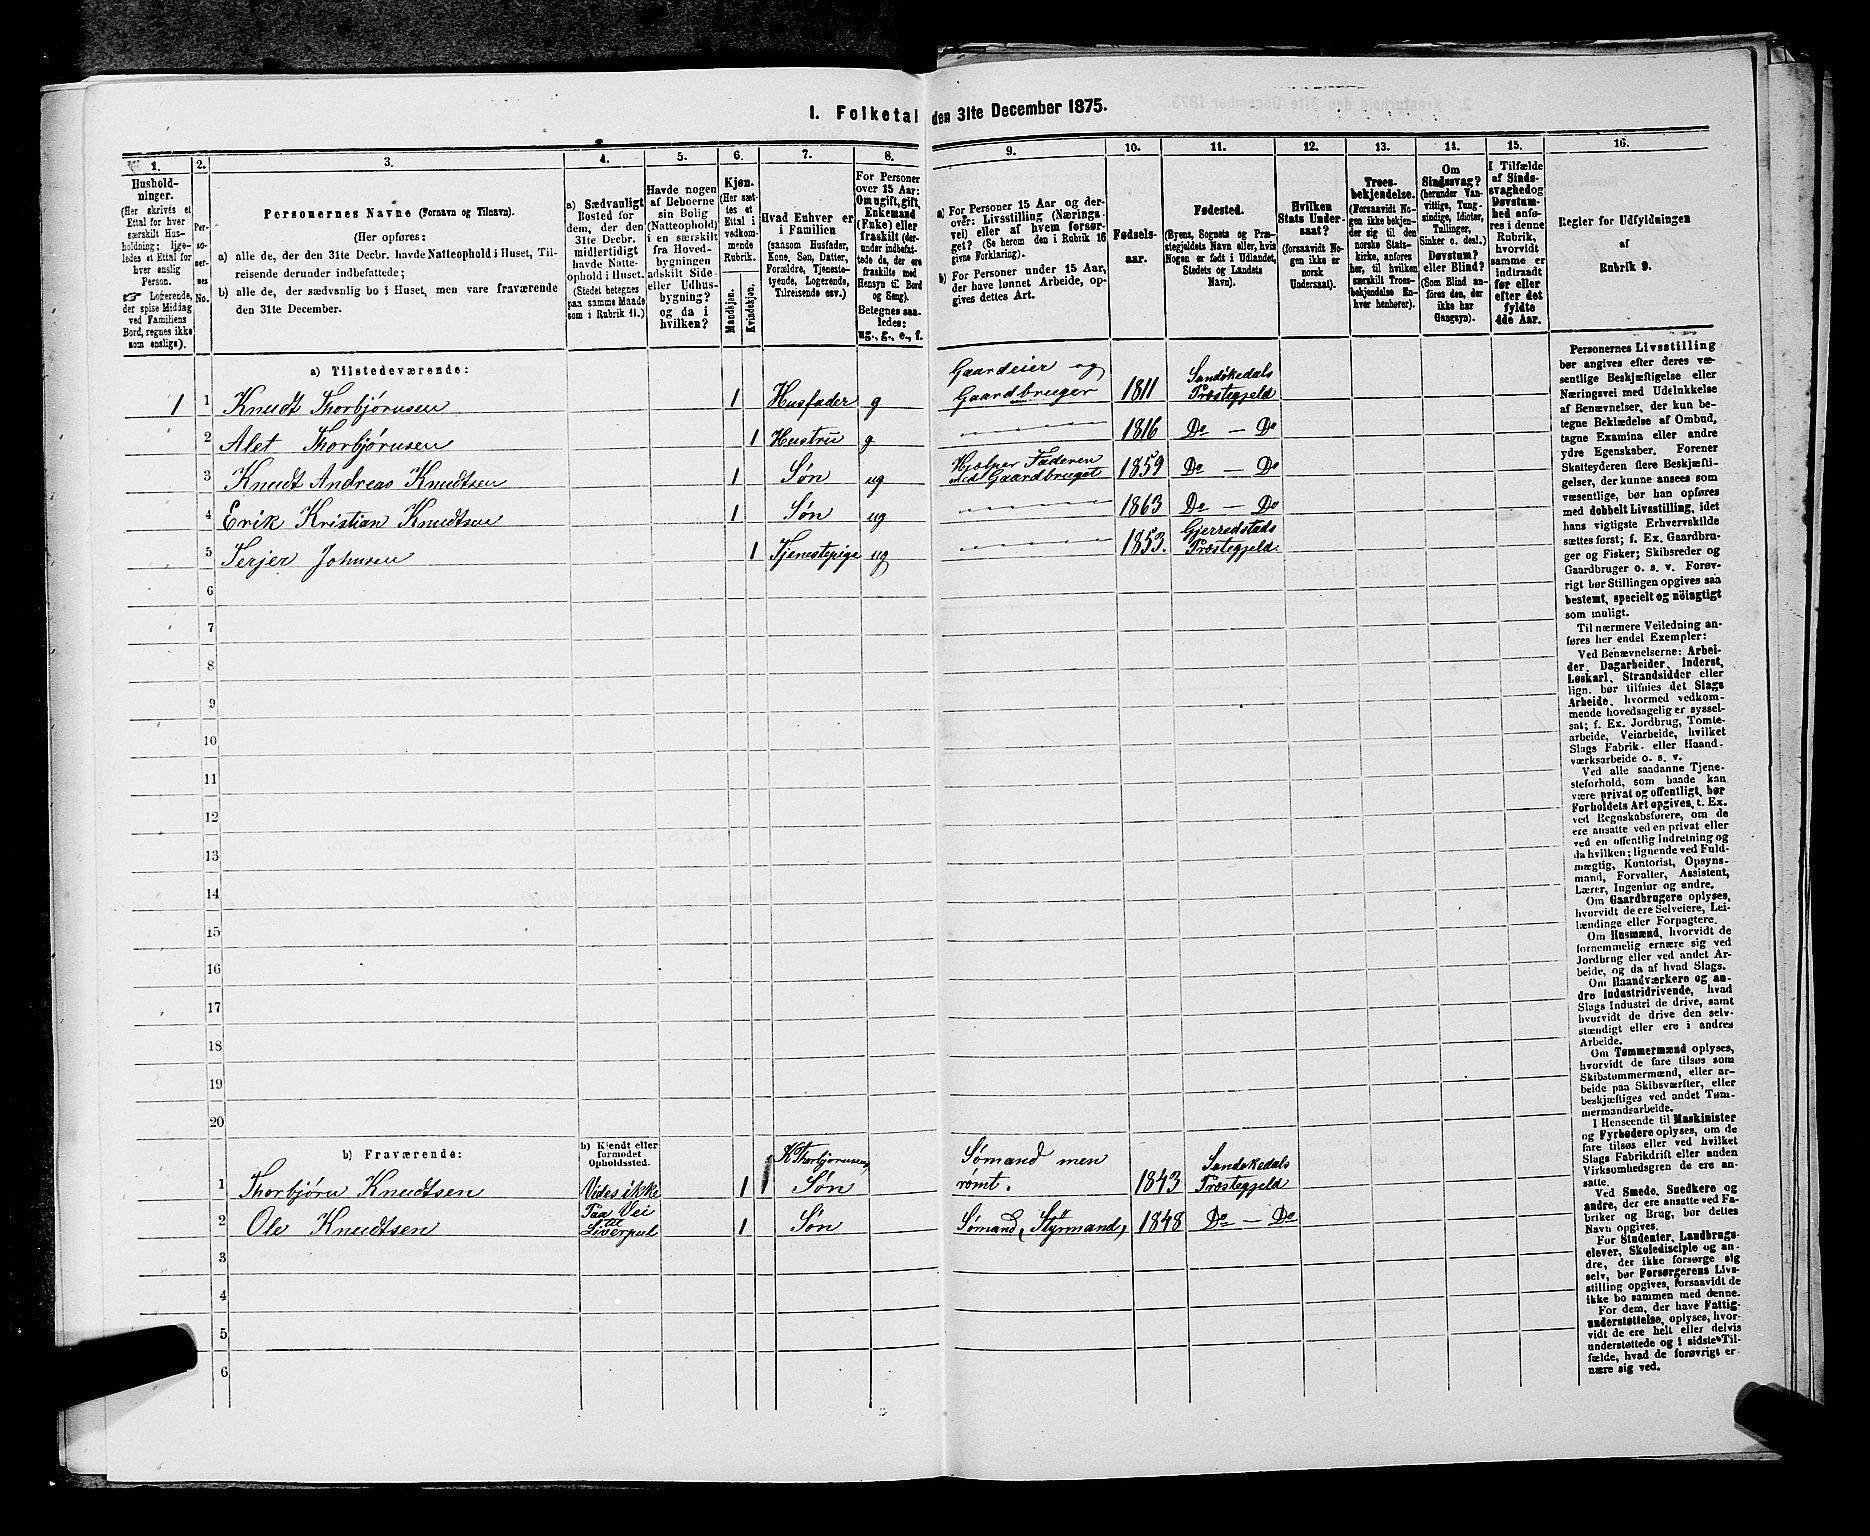 I. Folketal den 31te December 1875.
1.
2.
3.
4.
5.
6.
7.
8.
9.
10.
11.
12.
13.
14.
15.
16.
Hushold-
ninger.
(Her skrives et
Ettal for hver
særskilt Hus-
holdning; lige-
ledes et Ettal for
hver enslig
Person.
☞ Logerende,
der spise Middag
ved Familiens
Bord, regnes ikke
som enslige).
Per-
so-
ner-
nes
No.
Personernes Navne (Fornavn og Tilnavn).
(Her opføres:
a) alle de, der den 31te Decbr. havde Natteophold i Huset, Til-
reisende derunder indbefattede;
b) alle de, der sædvanlig bo i Huset, men vare fraværende
den 31te December.
a) Sædvanligt
Bosted for
dem, der den
31te Decbr.
midlertidigt
havde Natte-
ophold i Huset.
(Stedet betegnes
paa samme Maade
som i Rubrik 11.)
Havde nogen
af Beboerne
sin Bolig
(Natteophold)
i en særskilt
fra Hoved-
bygningen
adskilt Side-
eller Udhus-
bygning?
og da i
hvilken?
Kjøn.
(Her sæt-
tes et
Ettal i
vedkom-
mende
Rubrik.
Mandkjøn.
Kvindekjøn.
Hvad Enhver er
i Familien
(saasom Husfader,
Kone, Søn, Datter,
Forældre, Tjeneste-
tyende, Logerende,
Tilreisende osv.)
For Personer
over 15 Aar:
Om ugift, gift,
Enkemand
(Enke) eller
fraskilt (der-
under indbefat-
tede de, der ere
fraskilte med
Hensyn til Bord
og Seng).
Betegnes saa-
ledes:
ug., g., e., f.
a) For Personer 15 Aar og der-
over: Livsstilling (Nærings-
vei) eller af hvem forsør-
get? (Se herom den i Rubrik 16
givne Forklaring).
b) For Personer under 15 Aar,
der have lønnet Arbeide, op-
gives dettes Art.
Fødsels-
aar.
Fødested.
(Byens, Sognets og Præ-
stegjeldets Navn eller, hvis
Nogen er født i Udlandet,
Stedets og Landets
Navn).
Hvilken
Stats Under-
saat?
(forsaavidt No-
gen ikke er
norsk
Undersaat).
Troes-
bekjendelse.
(Forsaavidt No-
gen ikke bekjen-
der sig til den
norske Stats-
kirke, anføres
her, til hvilken
særskilt Troes-
bekjendelse En-
hver henhører).
Om
Sindssvag?
(herunder Van-
vittige, Tung-
sindige, Idioter,
Tullinger,
Sinker o. desl.)
Døvstum?
eller Blind?
(Som Blind an-
føres den, der
ikke har
Gangsyn).
I Tilfælde
af Sinds-
svaghed og
Døvstum-
hed anfø-
res i denne
Rubrik,
hvorvidt
samme er
indtraadt
før eller
efter det
fyldte
4de Aar.
Regler for Udfyldningen
af
Rubrik 9.
a) Tilstedeværende:
1 1 Knudt Thorbjørnsen 1 Husfader g Gaardeier og Gaardbruger 1811 Sandøkedals Præstegjeld
2 Alet Thorbjørnsen 1 Hustru g 1816 Do — Do
3 Knudt Andreas Knudtsen 1 Søn ug Hjelper Faderen med Gaardbruget 1859 Do — Do
4 Erik Kristian Knudtsen 1 Søn ug 1863 Do — Do
5 Terjer Johnsen 1 Tjenestepige ug 1853. Gjerrestads Præstegjeld
6
7
8
9
10
11
12
13
14
15
16
17
18
19
20
b) Fraværende:
b) Kjendt eller
formodet
Opholdssted.
1 Thorbjørn Knudtsen Vides ikke 1 K Thorbjørnsens Søn Sømand men rømt. 1843 Sandøkedals Præstegjeld
2 Ole Knudtsen Paa Vei til Liverpul 1 Søn Sømand, Styrmand, 1848 Do — Do
3
4
5
6
Personernes Livsstilling
bør angives efter deres væ-
sentlige Beskjæftigelse eller
Næringsvei med Udelukkelse
af Benævnelser, der kun be-
tegne Beklædelse af Ombud,
tagne Examina eller andre
ydre Egenskaber. Forener
Skatteyderen flere Beskjæfti-
gelser, der kunne ansees som
væsentlige, bør han opføres
med dobbelt Livsstilling, idet
hans vigtigste Erhvervskilde
sættes først; f. Ex. Gaardbru-
ger og Fisker; Skibsreder og
Gaardbruger o. s. v. Forøv-
rigt bør Stillingen opgives saa
bestemt, specielt og nöiagtigt
som muligt.
Til nærmere Veiledning an-
føres her endel Exempler:
Ved Benævnelserne: Arbei-
der, Dagarbeider, Inderst,
Løskarl, Strandsidder eller
lign. bør tilføies det Slags
Arbeide, hvormed vedkom-
mende hovedsagelig er syssel-
sat; f. Ex. Jordbrug, Tomte-
arbeide, Veiarbeide, hvilket
Slags Fabrik- eller Haand-
værksarbeide o. s. v.
Ved alle saadanne Tjene-
steforhold, som baade kan
være privat og offentligt, bør
Forholdets Art opgives, t. Ex.
ved Regnskabsførere, om de
ere ansatte ved en privat eller
ved en offentlig Indretning og
da hvilken; lignende ved Fuld-
mægtig, Kontorist, Opsyns-
mand, Forvalter, Assistent,
Lærer, Ingeniør og andre.
Om Gaardbrugere oplyses,
hvorvidt de ere Selveiere, Lei-
lændinge eller Forpagtere.
Om Husmænd, hvorvidt de
fornemmelig ernære sig ved
Jordbrug eller ved andet Ar-
beide, og da af hvad Slags.
Om Haandværkere og an-
dre Industridrivende, hvad
Slags Industri de drive, samt
hvorvidt de drive den selv-
stændigt eller ere i andres
Arbeide.
Om Tømmermænd oplyses,
hvorvidt de fare tilsøs som
Skibstømmermænd, eller ar-
beide paa Skibsværfter, eller
beskjæftiges ved andet Tøm-
mermandsarbeide.
I Henseende til Maskinister
og Fyrbødere oplyses, om de
fare tilsøs eller ved hvilket
Slags Fabrikdrift eller anden
Virksomhedsgren de ere an-
satte.
Ved Smede, Snedkere og
andre, der ere ansatte ved Fa-
briker og Brug, bør dettes
Navn opgives.
For Studenter, Landbrugs-
elever, Skoledisciple og an-
dre, der ikke forsørge sig
selv, bør Forsørgerens Livs-
stilling opgives, forsaavidt de
ikke bo sammen med denne.
For dem, der have Fattig-
understøttelse, oplyses, hvor-
vidt de ere helt eller delvis
understøttede og i sidste Til-
fælde, hvad de forøvrigt er-
nære sig ved.